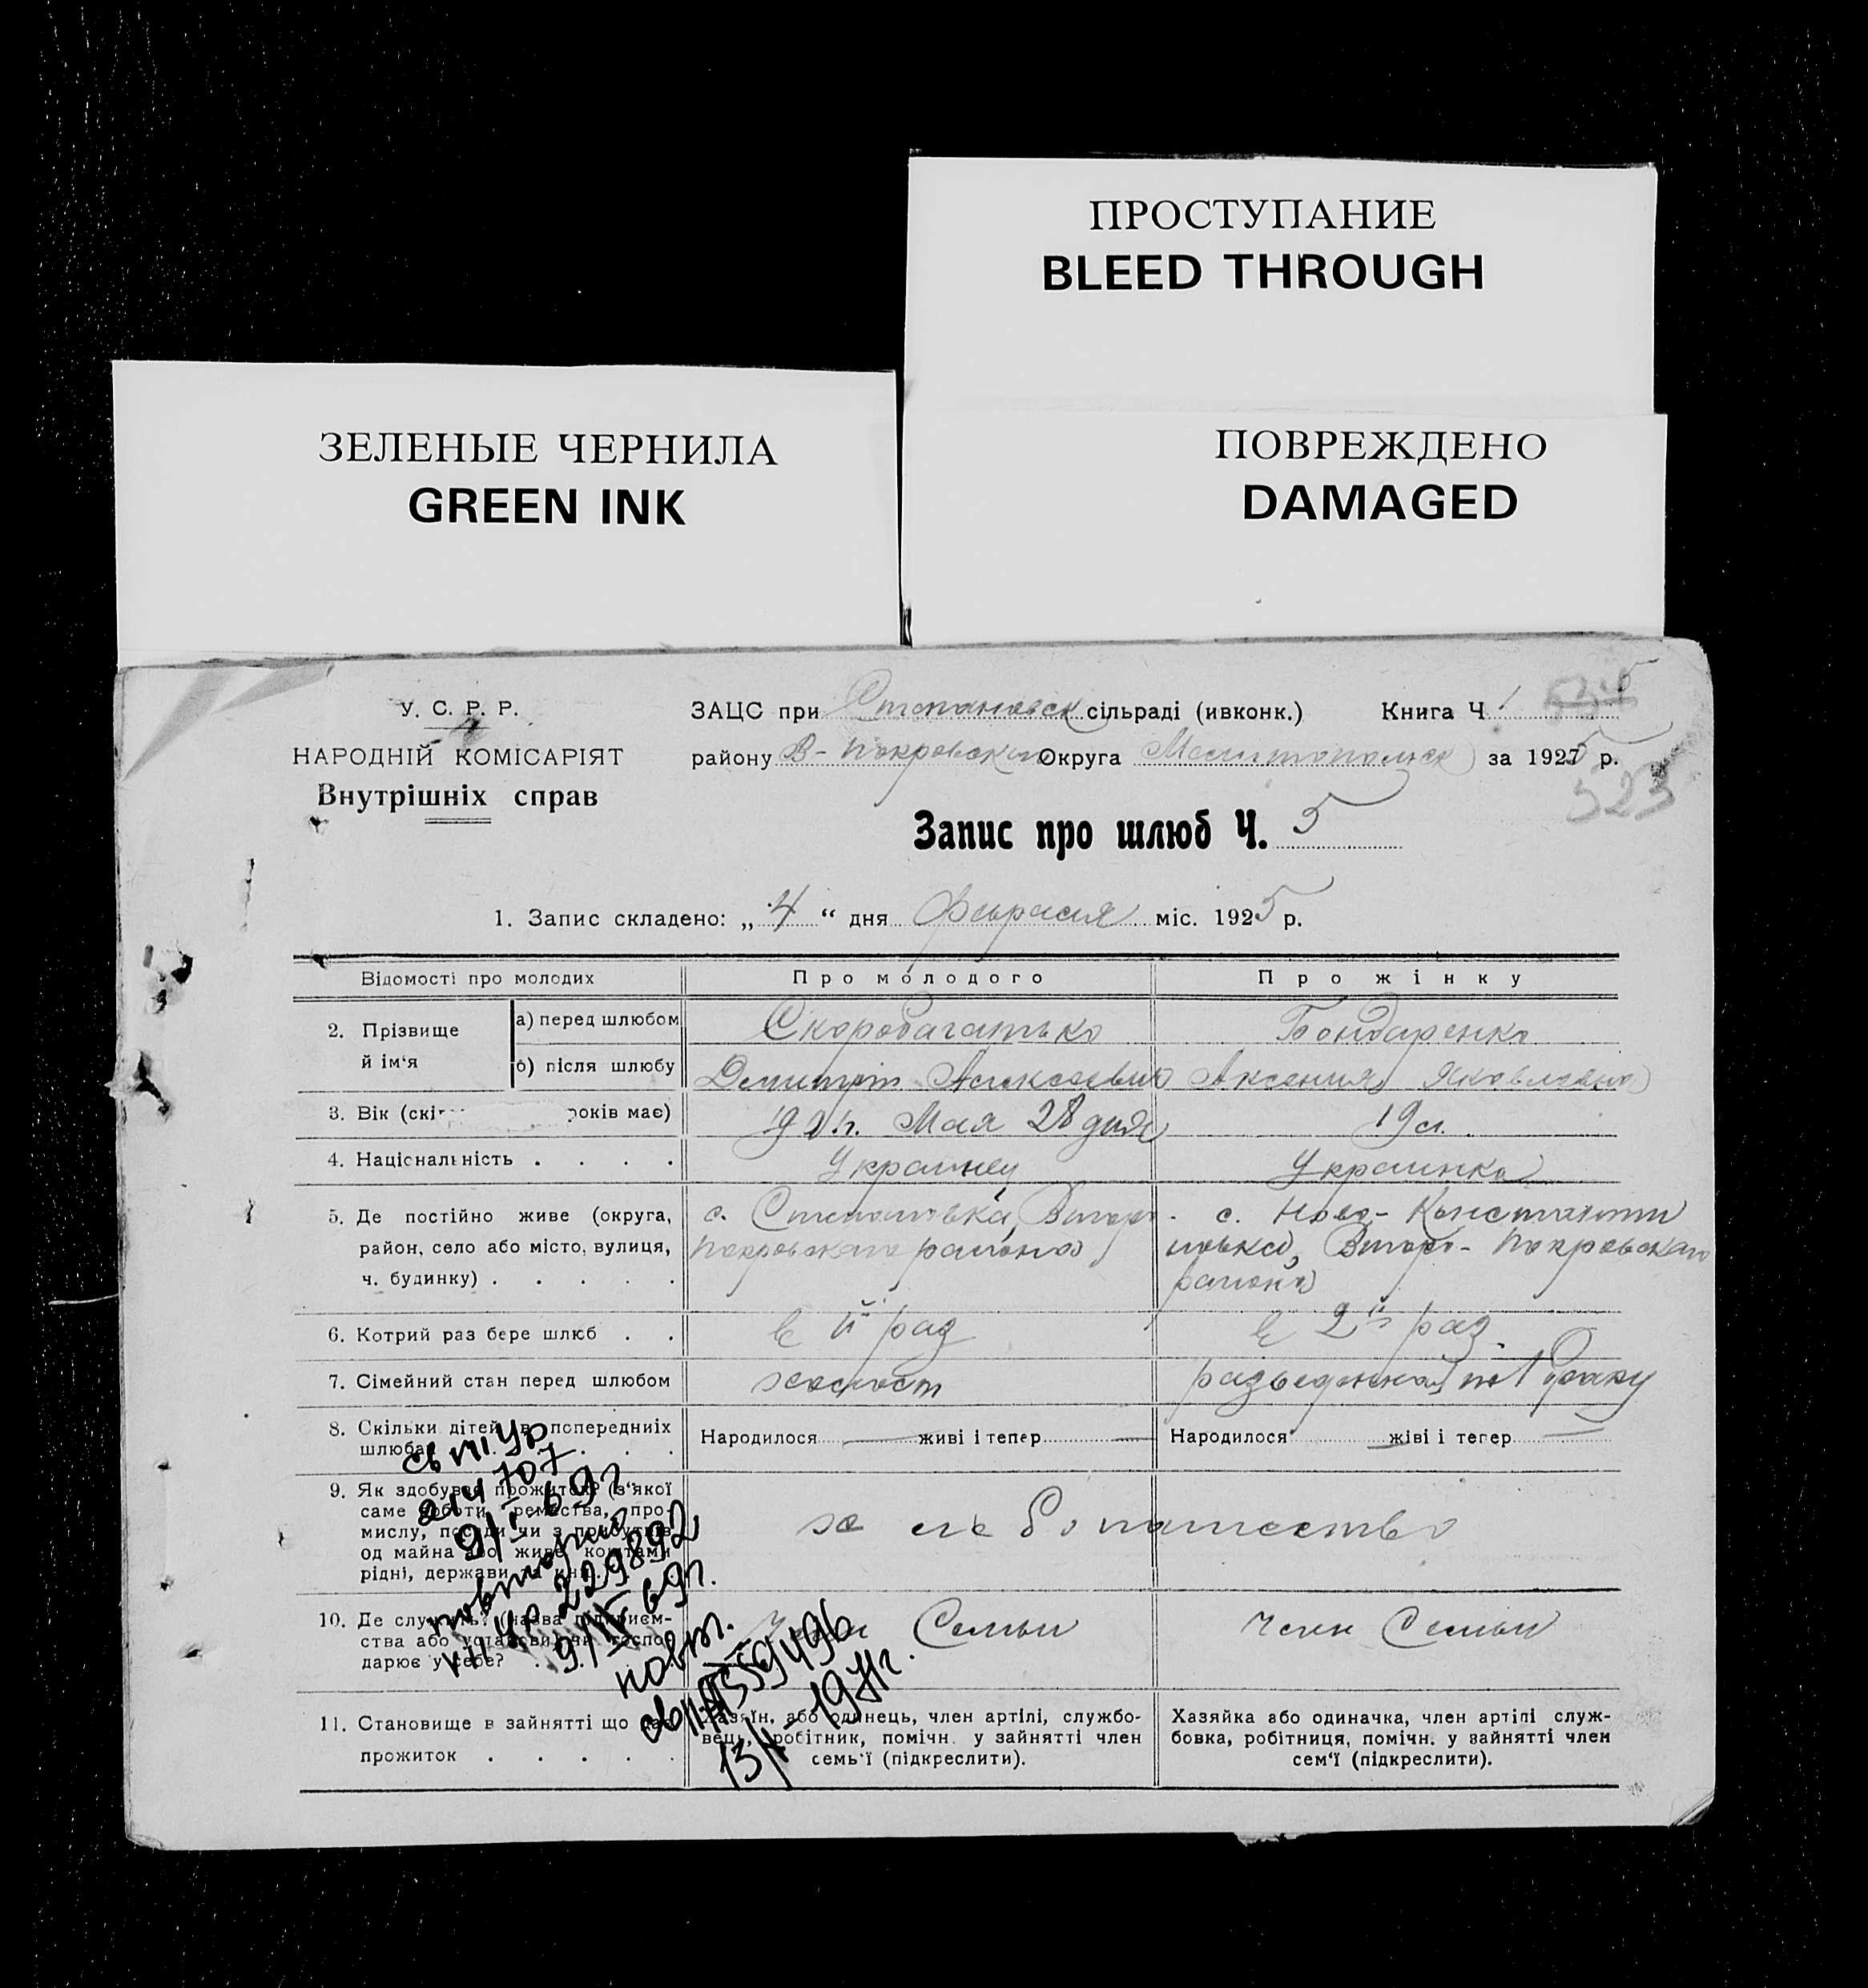 ПРОСТУПАНИЕ
BLEED THROUGH
ЗЕЛЕНЫЕ ЧЕРНИЛА
GREEN INK
ПОВРЕЖДЕНО
DAMAGED
У. С. Р. Р.
НАРОДНІЙ КОМІСАРІЯТ
Внутрішніх справ
ЗАЦС при Степановск сільраді (ивконк.) Книга Ч 1
району В-Покровский Округа Мелитопольск за 1925 р.
523
Запис про шлюб Ч. 5
1. Запис складено: „4“ дня Февраля міс. 1925 р.
Відомості про молодих Про молодого Про жінку
2. Прізвище й ім'я а) перед шлюбом Скоробагатько Бондаренко
б) після шлюбу Дмитрий Алексеевич Аксения Яковлевна
3. Вік (скіт років має) Мая 28 дня 19 л.
4. Національність . . . . Украинец Украинка
5. Де постійно живе (округа, район, село або місто, вулиця, ч. будинку) . . . . .
с. Степановка, Второ-
Покровского района
с. Ново-Константи
новка, Второ-Покровского
района
6. Котрий раз бере шлюб . . в й раз в 2й раз
7. Сімейний стан перед шлюбом холост разведенная по 1 браку
8. Скільки дітей в попередніх шлюбах . . . Народилося живі і тепер Народилося жіві і тепер
9. Як здобував прожиток? (з'якої
саме роботи, ремества, про-
мислу, посади чи з прибутків
од майна або живе коштами
рідні, держави
10. Де служить? (назва підприєм-
ства або установи) чи госпо-
дарює у себе? Семьи Член Семьи
11. Становище в зайнятті що дає
прожиток . . . . .
Хазяїн, або одинець, член артілі, службо-
вець, робітник, помічн. у зайнятті член
семь'ї (підкреслити).
Хазяйка або одиначка, член артілі служ-
бовка, робітниця, помічн. у зайнятті член
сем'ї (підкреслити).
214707
9/I-69г
повторно
229892
9/IV 69г.
повт.
559496
13/X-1971г.